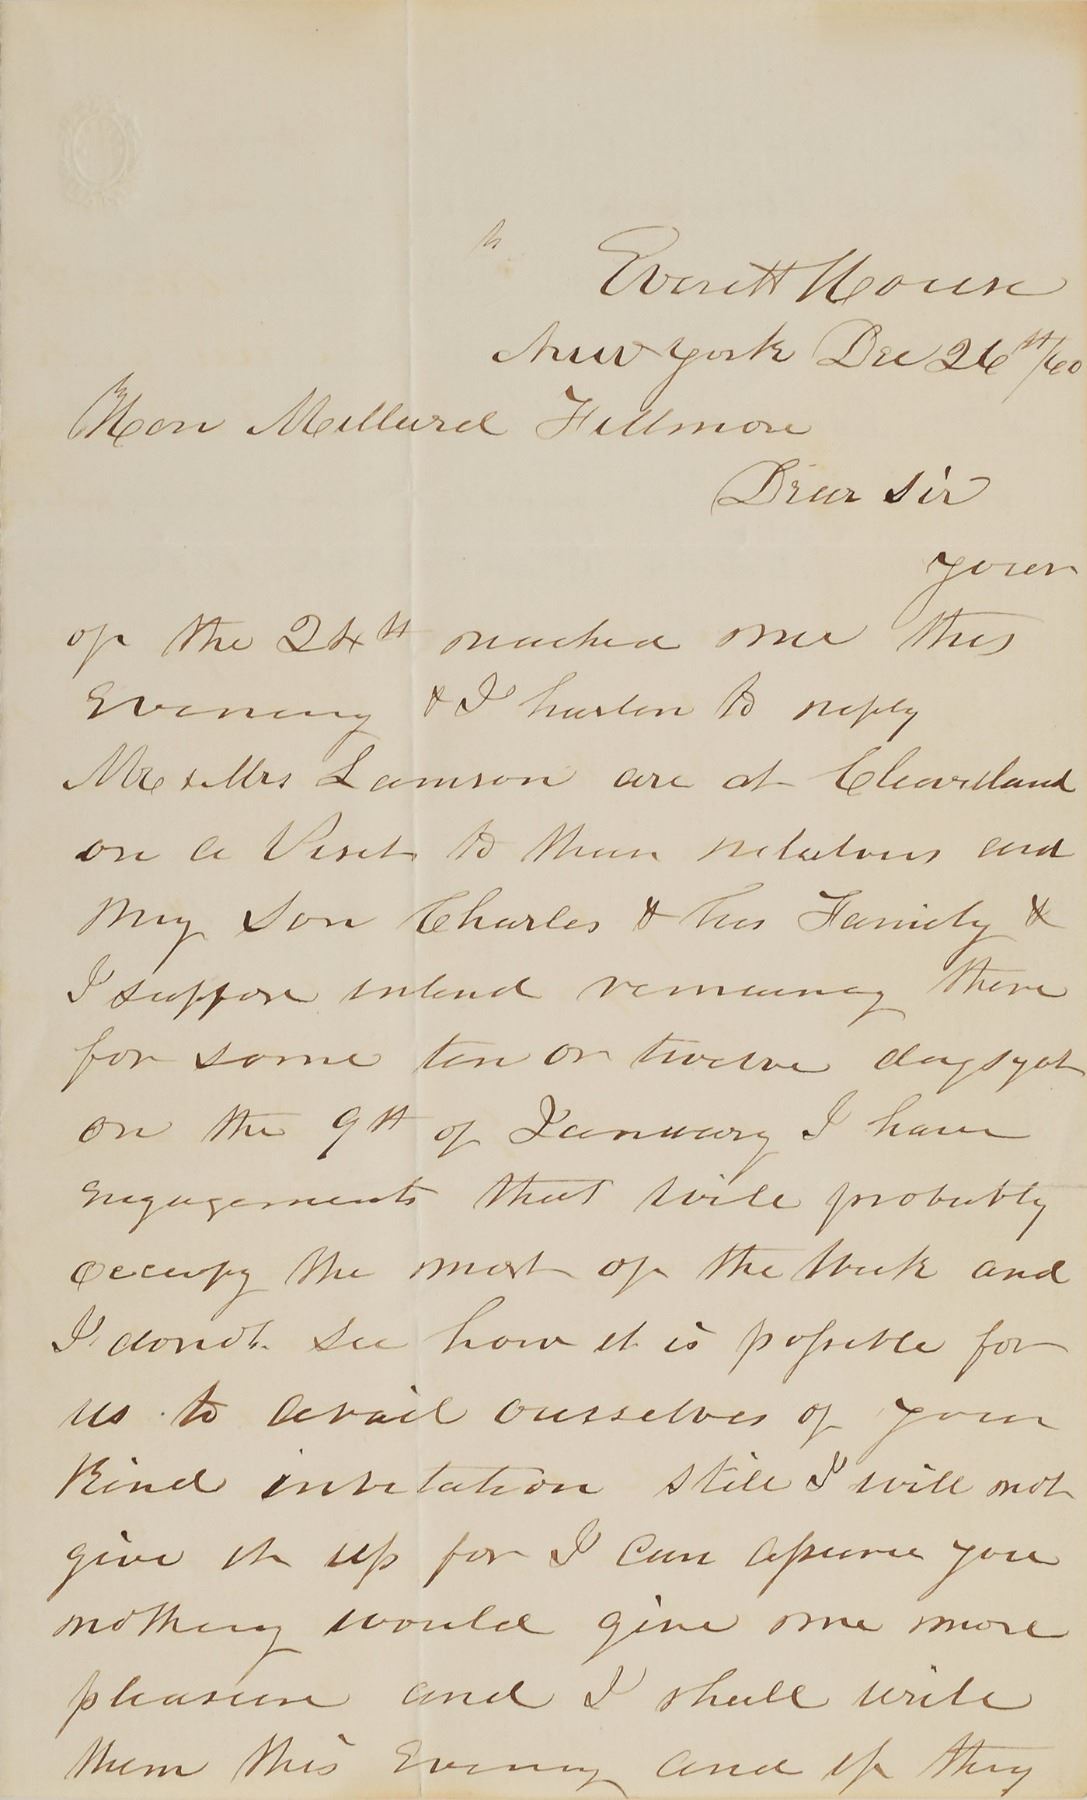 Everett House
New York Dec 26th/60
Hon Millard Fillmore
Dear Sir
your
of the 24th reached me this
Evening & I hasten to reply
Mr & Mrs Lamson are at Cleaveland
on a Visit to their relatives and
My Son Charles & his Family &
I suppose intend remaining there
for some ten or twelve days yet
on the 9th of January I have
engagements that will probably
occupy the most of the Week and
I donot see how it is possible for
us to avail ourselves of your
Kind invitation still I will not
give it up for I can assure you
nothing would give me more
pleasure and I shall write
them this Evening and if they